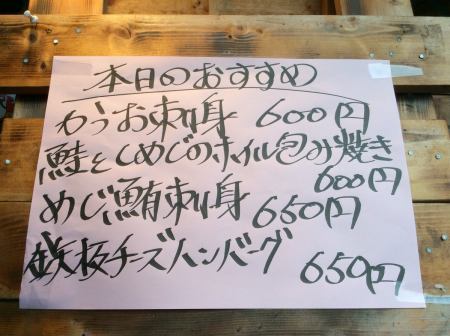 本日のおすすめ
かつお刺身 600円
鮭としめじのホイル包み焼き
600円
めじ鮪刺身 650円
鉄板チーズハンバーグ 650円